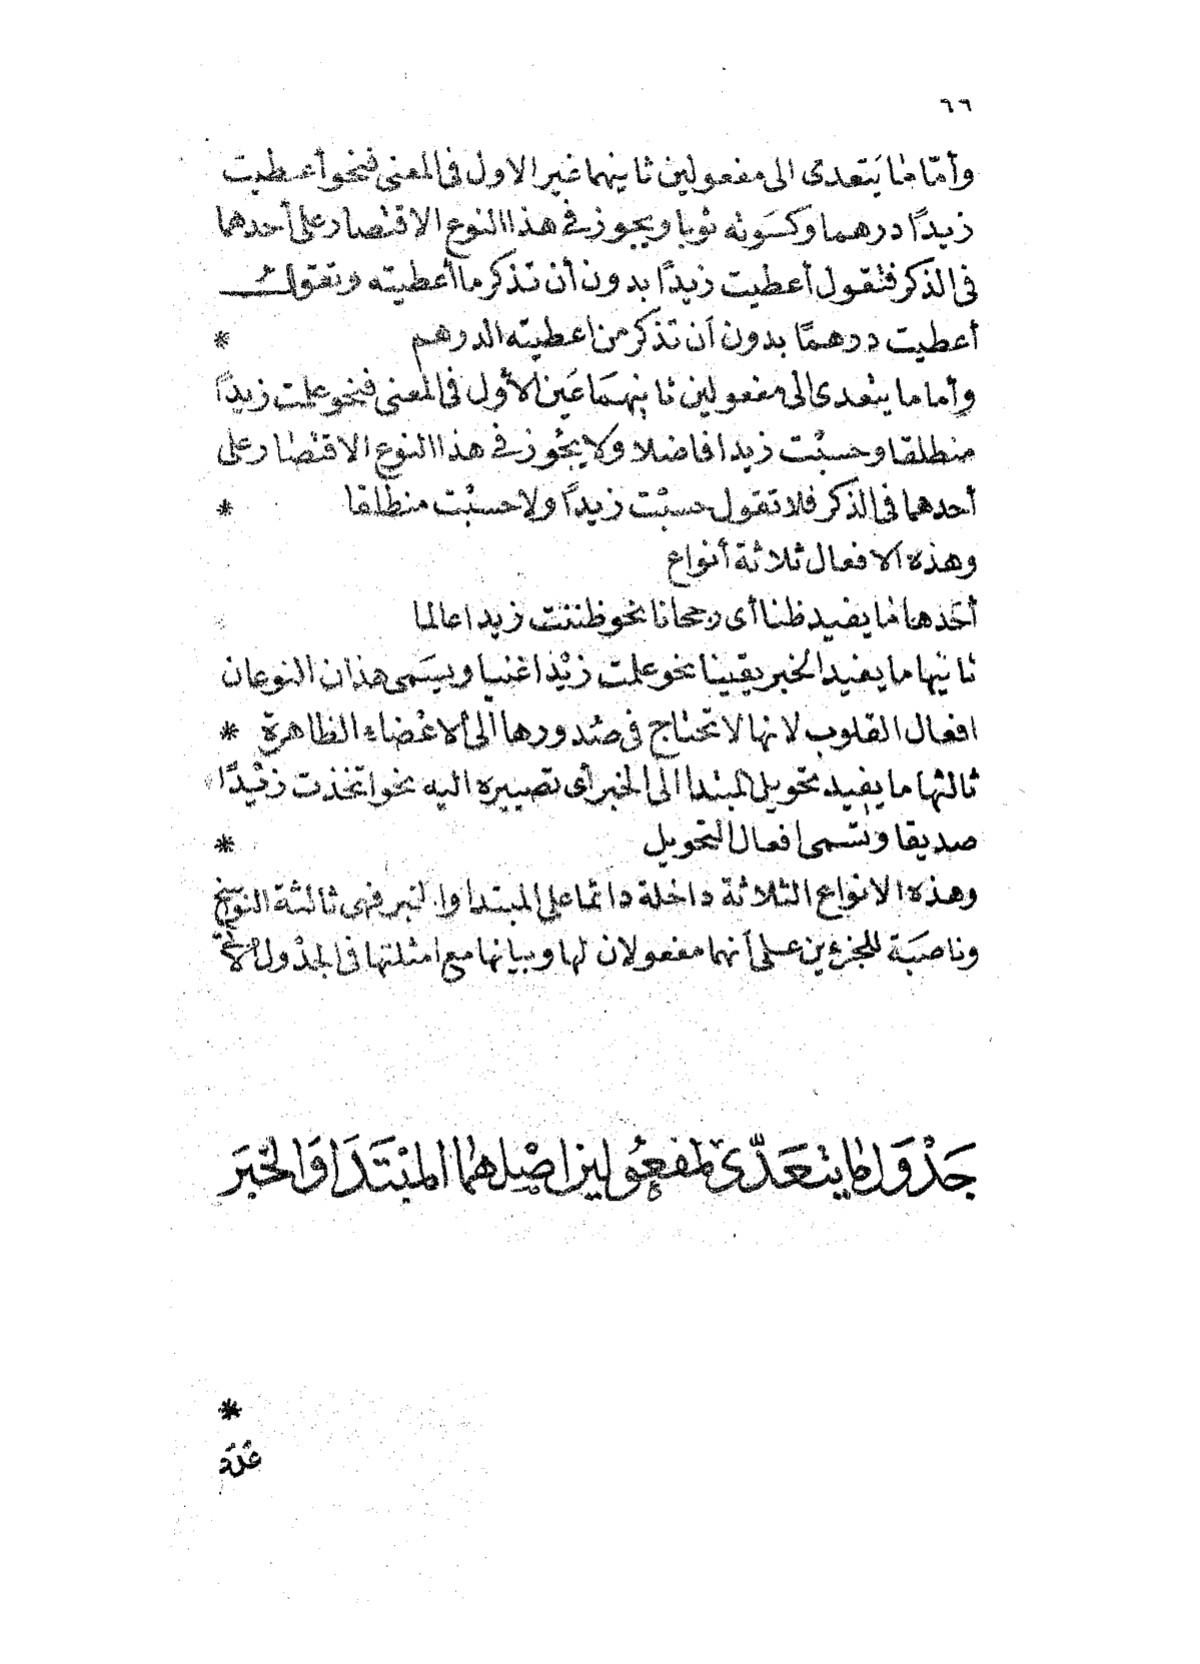 ٦٦
وأمّا ما يَتعدى الى مفعولين ثانيهما غير الاول فى المعنى فنحو أعطيت
زيدًا درهما وكسَوته ثوبا ويجوز فى هذا النوع الاقتصار على أحدهما
فى الذكر فتقول أعطيت زيدًا بدون أن تذكر ما أعطيته وتقول
أعطيت درهمًا بدون أن تذكر من اعطيته الدرهم *
وأما ما يتعدى الى مفعولين ثانيهمَا عَين الأول فى المعنى فنحو علمت زيدًا
منطلقا وحسبْت زيدا فاضلا ولا يجُوز فى هذا النوع الاقتصار على
أحدهما فى الذكر فلا تقول حسبْت زيدًا ولا حسبْت منطلقا *
وهذه الافعال ثلاثة أنواع
أحَدها ما يفيد ظنا أى رجحانا نحو ظننت زيدا عالما
ثانيها ما يفيد الخبر يقينا نحو علمت زيْدا غنيا ويسَمى هذان النوعان
افعال القلوب لانها لا تحتاج فى صُدورها الى الاعْضاء الظاهرة *
ثالثها ما يفيد تحويل المبتدا الى الخبر أى تصييره اليه نحو اتخذت زيْدًا
صديقا وتسمى افعال التحويل *
وهذه الانواع الثلاثة داخلة دائما على المبتدا والخبر فهى ثالثة النوسخ
وناصَبة للجزءين على أنهما مفعولان لها وبيانها مع امثلتها فى الجدْول الآتى
جَدْوَل ما يتَعَدّى لمفعُولين اصْلهما المبْتَدَا وَالخبَر
*
عَدَد